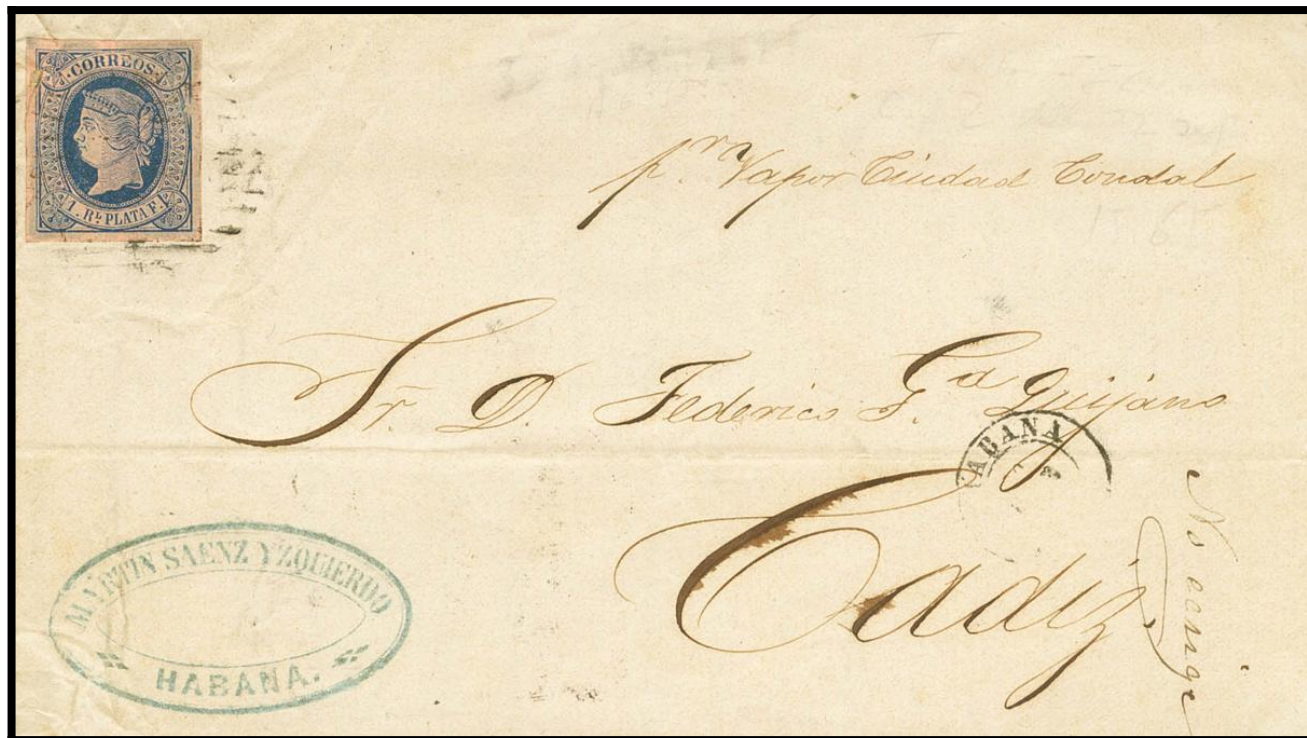 CORREOS
1. Rl. PLATA F.
pr. Vapor Ciudad Condal
Sr. D. Federico F. Ga Quijano
ABANA
Cadiz
MARTIN SAENZ YZQUIERDO
HABANA.